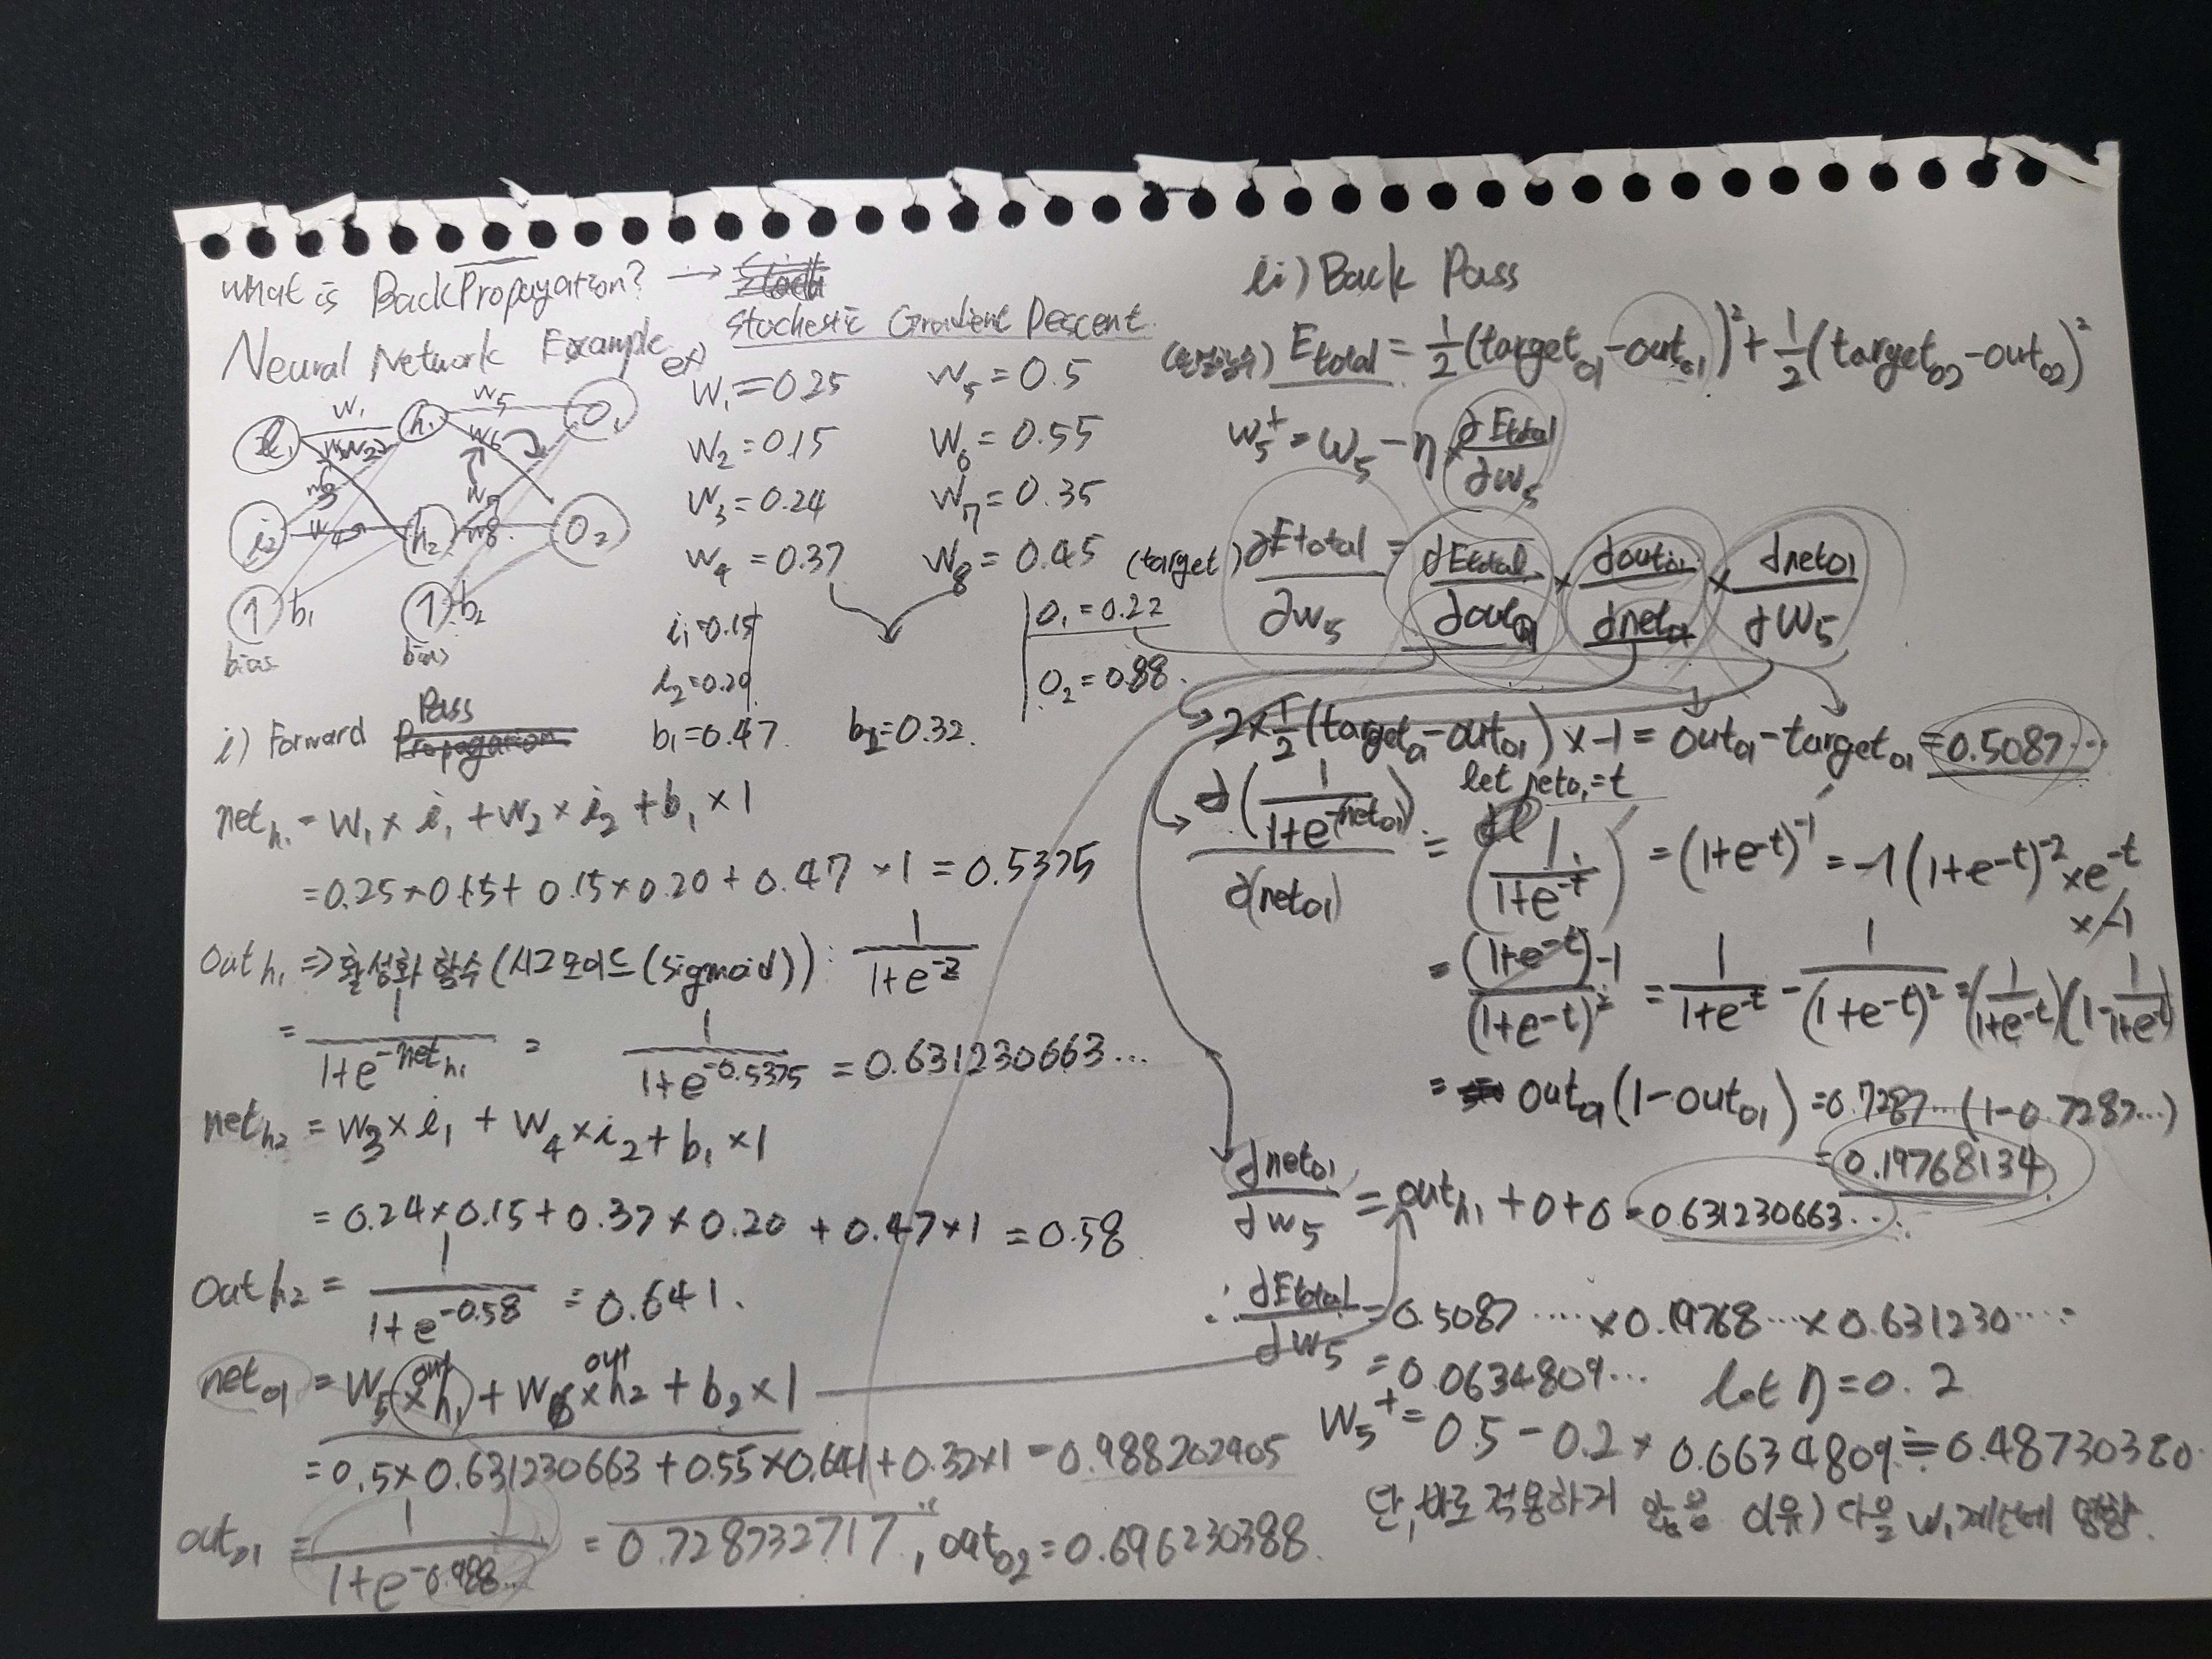 What is BackPropagation? →
Stochestic Gradient Descent
Neural Network Example
ex)
W₁=0.25 W₅=0.5
W₂=0.15 W₆=0.55
W₃=0.24 W₇=0.35
W₄=0.37 W₈=0.45
W₁ W₅
h₁ O₁
W₂ W₆
W₃ W₇
i₂ W₄ h₂ W₈ O₂
1 b₁ 1 b₂
bias bias
i₁=0.15
i₂=0.20
b₁=0.47 b₂=0.32
(target)
O₁=0.22
O₂=0.88
i) Forward Pass
net_h₁ = W₁×i₁+W₂×i₂+b₁×1
=0.25×0.15+0.15×0.20+0.47×1=0.5375
Out h₁ => 활성화 함수 (시그모이드 (sigmoid)) : 1/(1+e^-z)
= 1/(1+e^-net_h₁) = 1/(1+e^-0.5375) = 0.631230663...
net_h2 = W₃×i₁ + W₄×i₂+b₁×1
=0.24×0.15+0.37×0.20+0.47×1=0.58
Out h₂ = 1/(1+e^-0.58) = 0.641.
net_o1 = W₅×out h₁ + W₆×out h₂ + b₂×1
=0.5×0.631230663+0.55×0.641+0.32×1=0.988202905
out_o1 = 1/(1+e^-0.988...) = 0.728732717", out_o2=0.696230388
ii) Back Pass
E_total = 1/2(target_o1-out_o1)²+1/2(target_o2-out_o2)²
W₅⁺=W₅-η×∂E_total/∂W₅
∂E_total/∂W₅ = ∂E_total/∂out_o1 × ∂out_o1/∂net_o1 × ∂net_o1/∂W₅
2×1/2(target_o1-out_o1)×-1=out_o1-target_o1=0.5087...
let net_o1=t
∂(1/(1+e^-(net_o1)))/∂(net_o1) = (1/(1+e^-t))' = (1+e^-t)^-1 = -1(1+e^-t)^-2 ×e^-t
×-1
= ((1+e^-t)-1)/(1+e^-t)² = 1/(1+e^-t) - 1/(1+e^-t)² = (1/(1+e^-t))(1-1/(1+e^-t))
= out_o1(1-out_o1)=0.7287...(1-0.7287...)
=0.19768134
∂net_o1/∂W₅ = out_h₁+0+0=0.631230663...
∴ ∂E_total/∂W₅ = 0.5087....×0.19768...×0.631230....
=0.0634809... let η=0.2
W₅⁺=0.5-0.2×0.0634809≒0.48730380
단, 바로 적용하지 않음 이유) 다음 W₁계산에 영향.